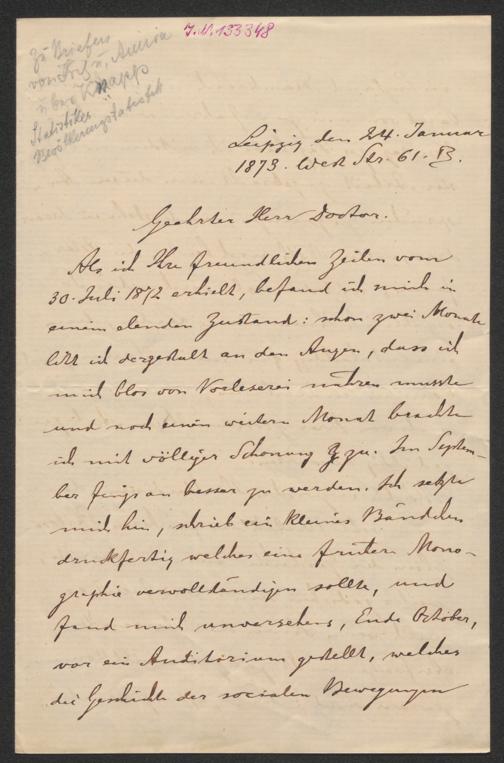 J.N. 133348
Zu Briefen
von
u. bei Knapp
Statistiker
Bevölkerungsstatistik
Leipzig den 24. Januar
1873. West Str. 61. B.
Geehrter Herr Doctor.
Als ich Ihre freundlichen Zeilen vom
30. Juli 1872 erhielt, befand ich mich in
einem elenden Zustand: schon zwei Monate
litt ich dergestalt an den Augen, dass ich
mich blos von Vorleserei nähren musste
und noch einen weitern Monat brachte
ich mit völliger Schonung zu. Im Septem-
ber fings an besser zu werden. Ich setzte
mich hin, schrieb ein kleines Bändchen
druckfertig welches eine frühere Mono-
graphie vervollständigen sollte, und
fand mich unversehens, Ende October,
vor ein Auditorium gestellt, welches
die Geschichte der socialen Bewegungen